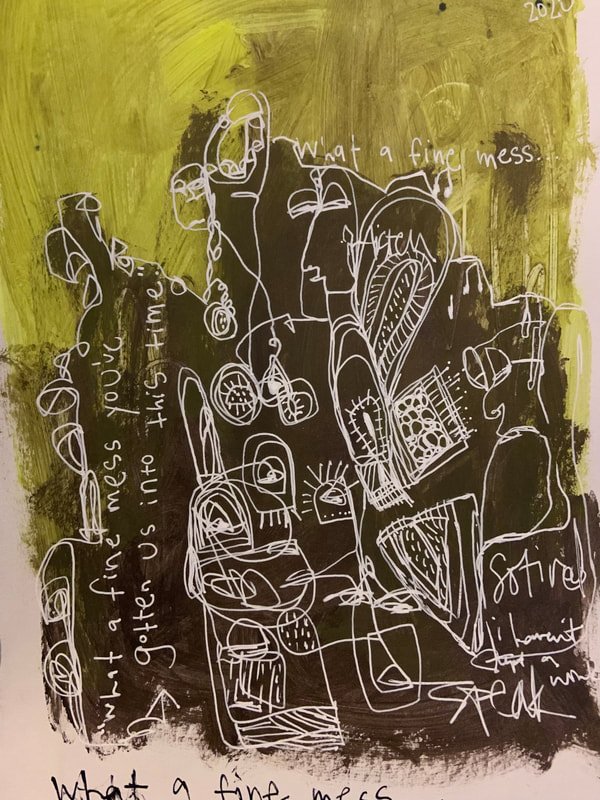 2020
what a fine mess...
listen
"what a fine mess you've
gotten us into this time..."
So tired
i haven't
a
speak
what a fine mess